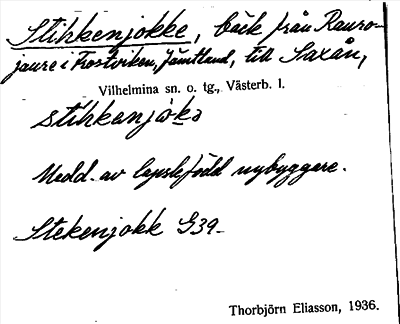 Stihkenjokke, bäck från Rauro-
jaure i Frostviken, Jämtland, till Saxån,
Vilhelmina sn. o. tg., Västerb. l.
stihkanjåkə
Medd. av lapskfödd nybyggare.
Stekenjokk G39
Thorbjörn Eliasson, 1936.